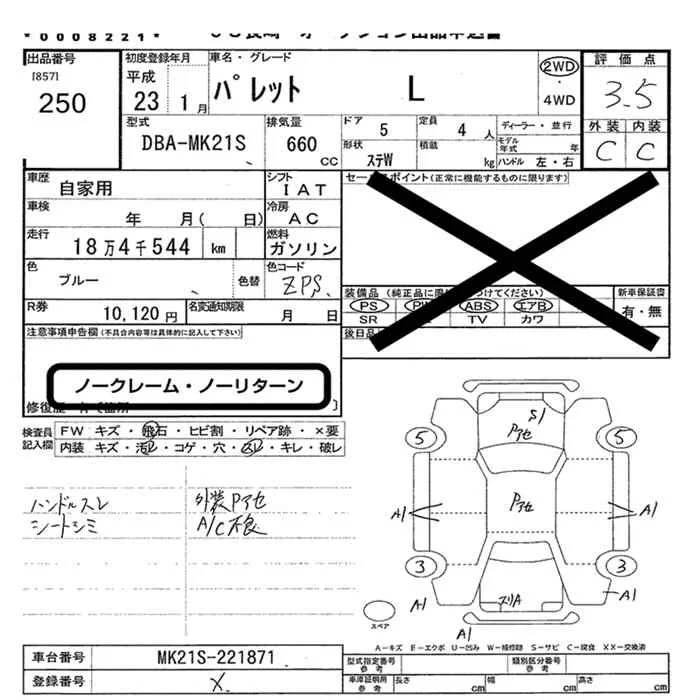 *0008221*
出品番号
[857]
250
初度登録年月
平成
23 1月
車名・グレード
パレット L
2WD
・
4WD
評価点
3.5
外装 内装
C C
型式
DBA-MK21S
排気量
660
cc
ドア 5
定員 4人
形状
ステW
積載
kg
ディーラー・並行
モデル年式 年
ハンドル 左・右
車歴
自家用
シフト
IAT
セールスポイント(正常に機能するものに限ります)
車検
年 月( 日)
冷房
AC
走行
18万4千544 km
燃料
ガソリン
色
ブルー
色替
色コード
ZPS
R券
10,120円
名変通知期限
月 日
装備品
PS
ABS
エアB
SR
TV
カワ
新車保証書
有・無
後日品
注意事項申告欄(不具合内容等は具体的に記入して下さい)
ノークレーム・ノーリターン
検査員
記入欄
FW キズ・飛石・ヒビ割・リペア跡・×要
内装 キズ・汚レ・コゲ・穴・スレ・キレ・破レ
ハンドルスレ
シートシミ
外装Pアセ
A/C不良
S1
Pアセ
5
5
Pアセ
A1
A1
3
3
スリA
A1
A1
A1
スペア
A-キズ E-エクボ U-凹み W-補修跡 S-サビ C-腐食 XX-交換済
車台番号
MK21S-221871
登録番号
X
型式指定番号
参考
類別区分番号
参考
車庫証明用
参考
長さ cm
幅 cm
高さ cm